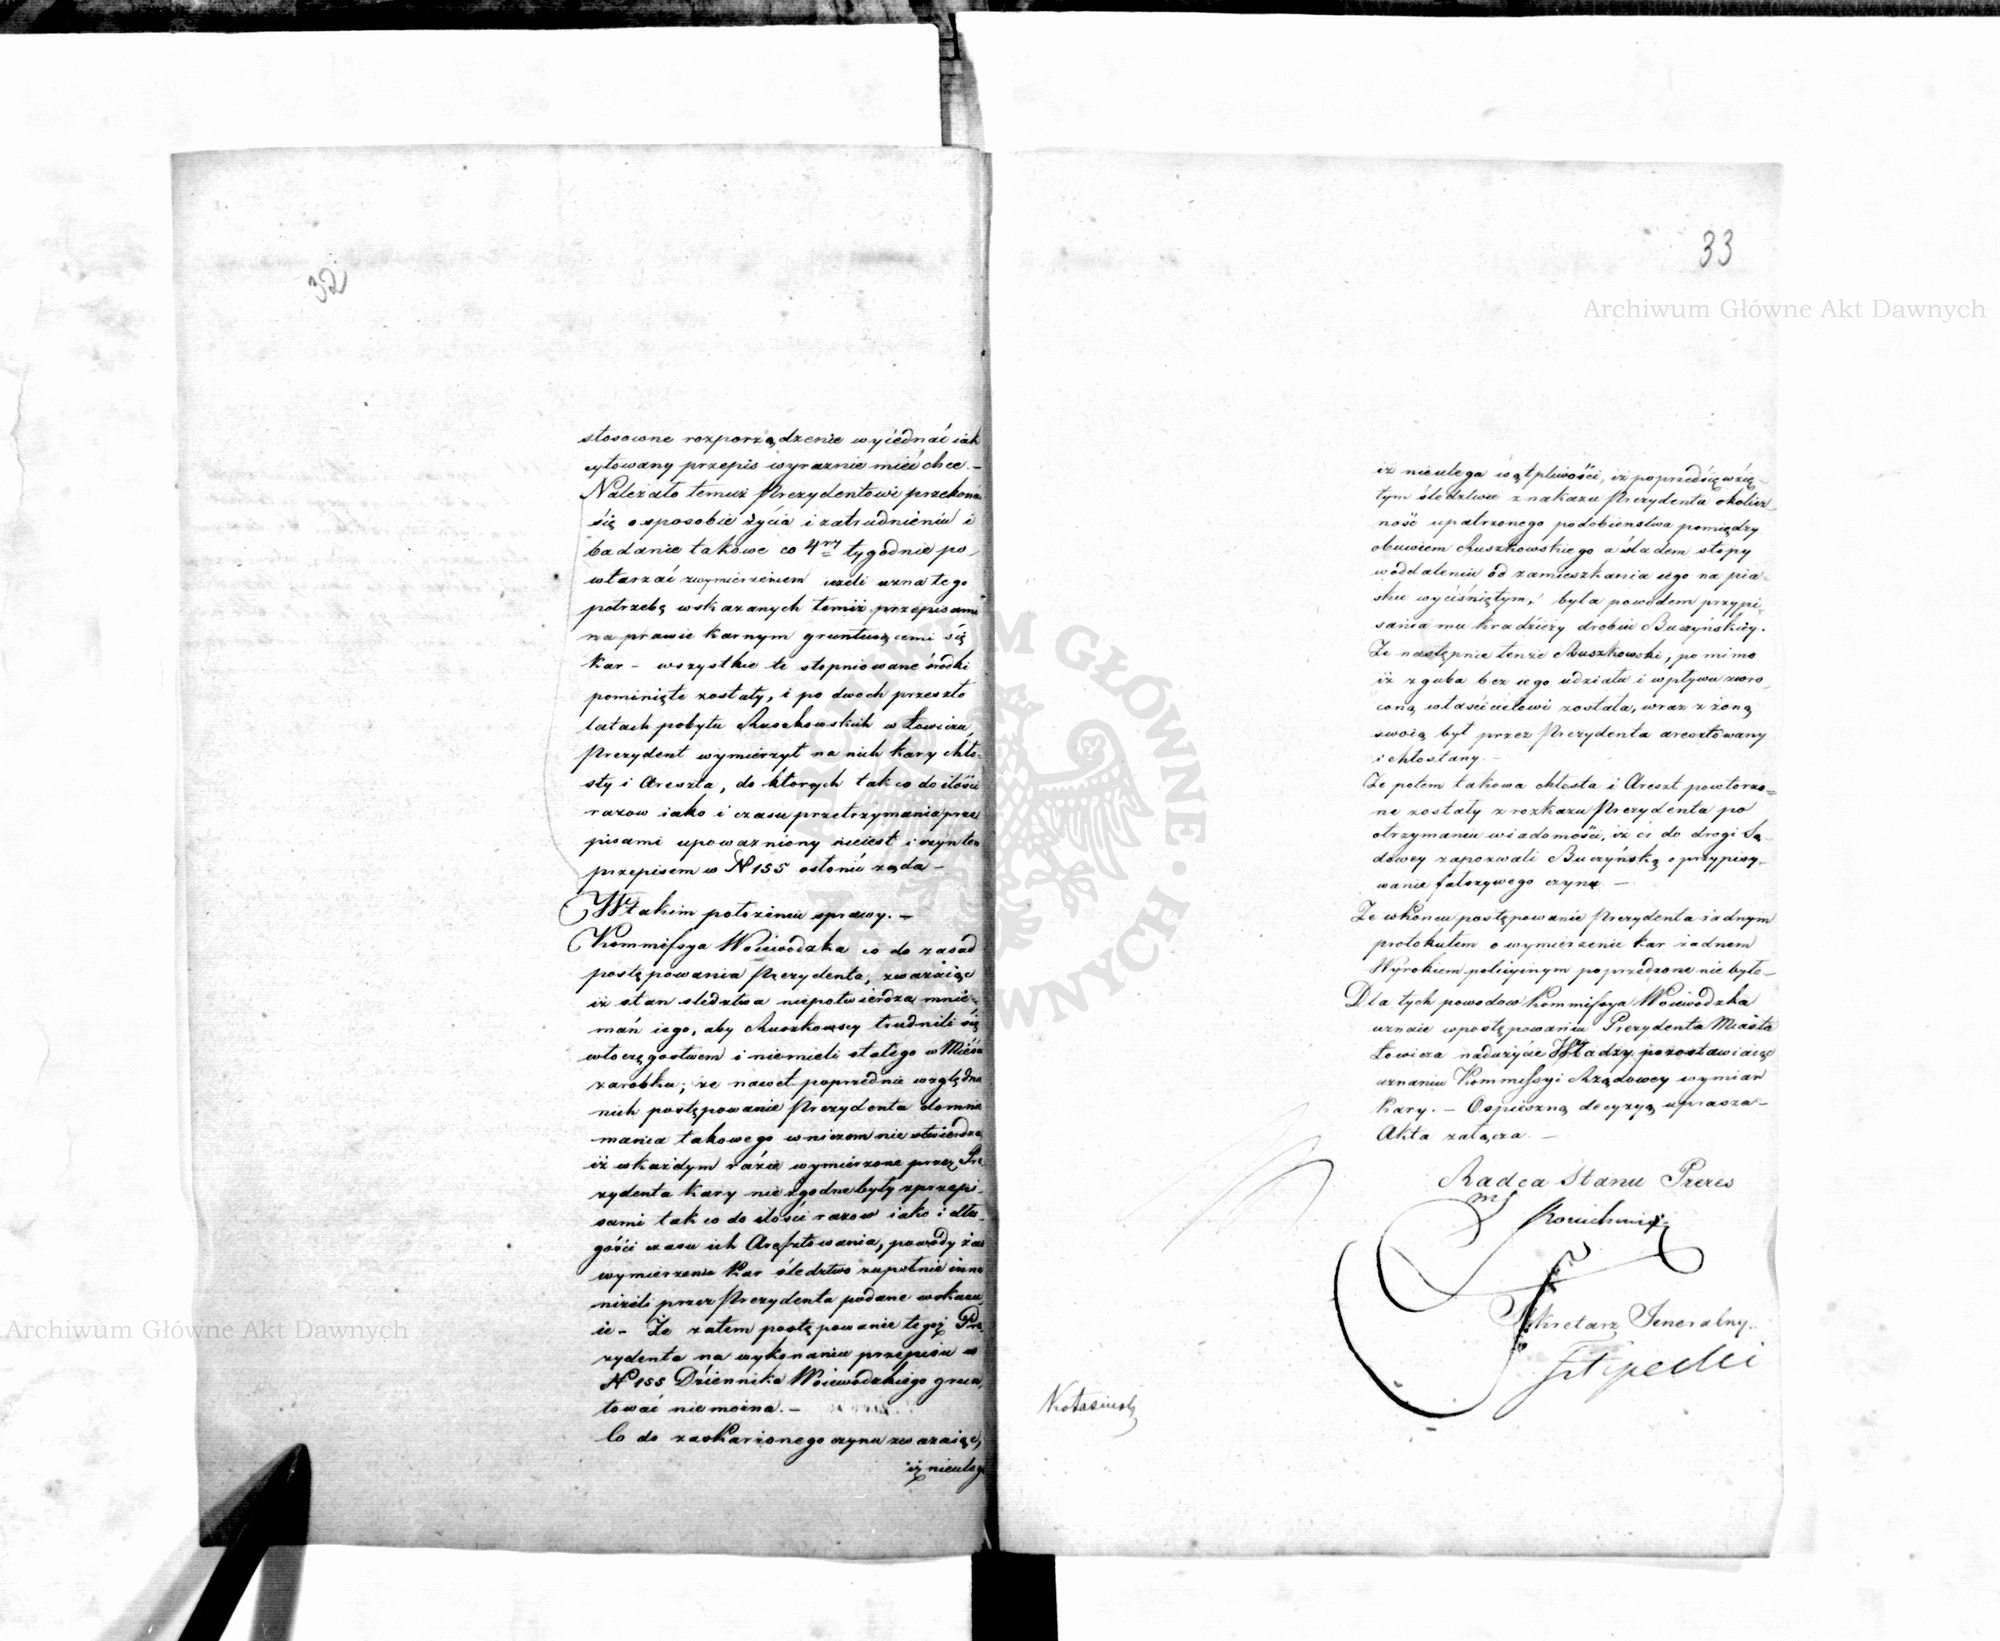 32
stosowne rozporządzenie wyiednać iak
cytowany przepis wyraznie mieć chce. –
Należało temuż Prezydentowi przekonać
się o sposobie życia i zatrudnieniu i
badanie takowe co 4ry tygodnie po-
wtarzać z wymierzeniem ieżeli uzna tego
potrzebę wskazanych temiż przepisami
na prawie karnym gruntuiącemi się
kar – wszystkie te stopniowane środki
pominięte zostały, i po dwoch przeszło
latach pobytu Ruszkowskich w Łowiczu,
Prezydent wymierzył na nich kary chło-
sty i Aresztu, do których tak co do ilości
razow iako i czasu przetrzymania prze
pisami upoważniony nieiest i czyn ten
przepisem w N 155 osłonić żąda –
W takim położeniu sprawy. –
Kommissya Woiewodzka co do zasad
postępowania Prezydenta, zważaiąc
iż stan sledztwa niepotwierdza mnie-
mań iego, aby Ruszkowscy trudnili się
włoczęgostwem i niemieli stałego w Mieście
zarobku; że nawet poprzednie względem
nich postępowanie Prezydenta domnie
mania takowego w niczem nie stwierdza
iż w każdym razie wymierzone przez Pre
zydenta kary nie zgodne były z przepi-
sami tak co do ilości razow iako i dłu-
gości czasu ich Aresztowania, powody zaś
wymierzenia kar śledztwo zupełnie inne
niżeli przez Prezydenta podane wskazu-
ie – Że zatem postępowanie tegoż Pre-
zydenta na wykonaniu przepisu w
N 155 Dziennika Woiewodzkiego grun-
tować nie można. –
Co do zaskarżonego czynu zważaiąc,
iż nieulega
33
iż nieulega wątpliwości, iż poprzedścięwzię-
tym śledztwie z nakazu Prezydenta okolicz-
ność upatrzonego podobieństwa pomiędzy
obuwiem Ruszkowskiego a śladem stopy
w oddaleniu od zamieszkania iego na pia-
sku wyciśniętym, była powodem przypi-
sania mu kradzieży drobiu Buczyńskiey.
Że następnie tenże Ruszkowski, pomimo
iż zguba bez iego udziału i wpływu zwro-
coną właścicielowi została, wraz z żoną
swoią był przez Prezydenta aresztowany
i chłostany. –
Że potem takowa chłosta i Areszt powtorzo-
ne zostały z rozkazu Prezydenta po
otrzymaniu wiadomości, iż ci do drogi Są-
dowey zapozwali Buczyńską o przypisy-
wanie fałszywego czynu –
Że w końcu postępowanie Prezydenta żadnym
protokułem o wymierzenie kar żadnem
Wyrokiem policyinym poprzedzone nie było –
Dla tych powodow Kommissya Woiewodzka
uznaie w postępowaniu Prezydenta Miasta
Łowicza nadużycie Władzy pozostawiaiąc
uznaniu Kommissyi Rządowey wymiar
kary. – O spieszną decyzyą uprasza –
Akta załącza. –
Radca Stanu Prezes
Sekretarz Jeneralny